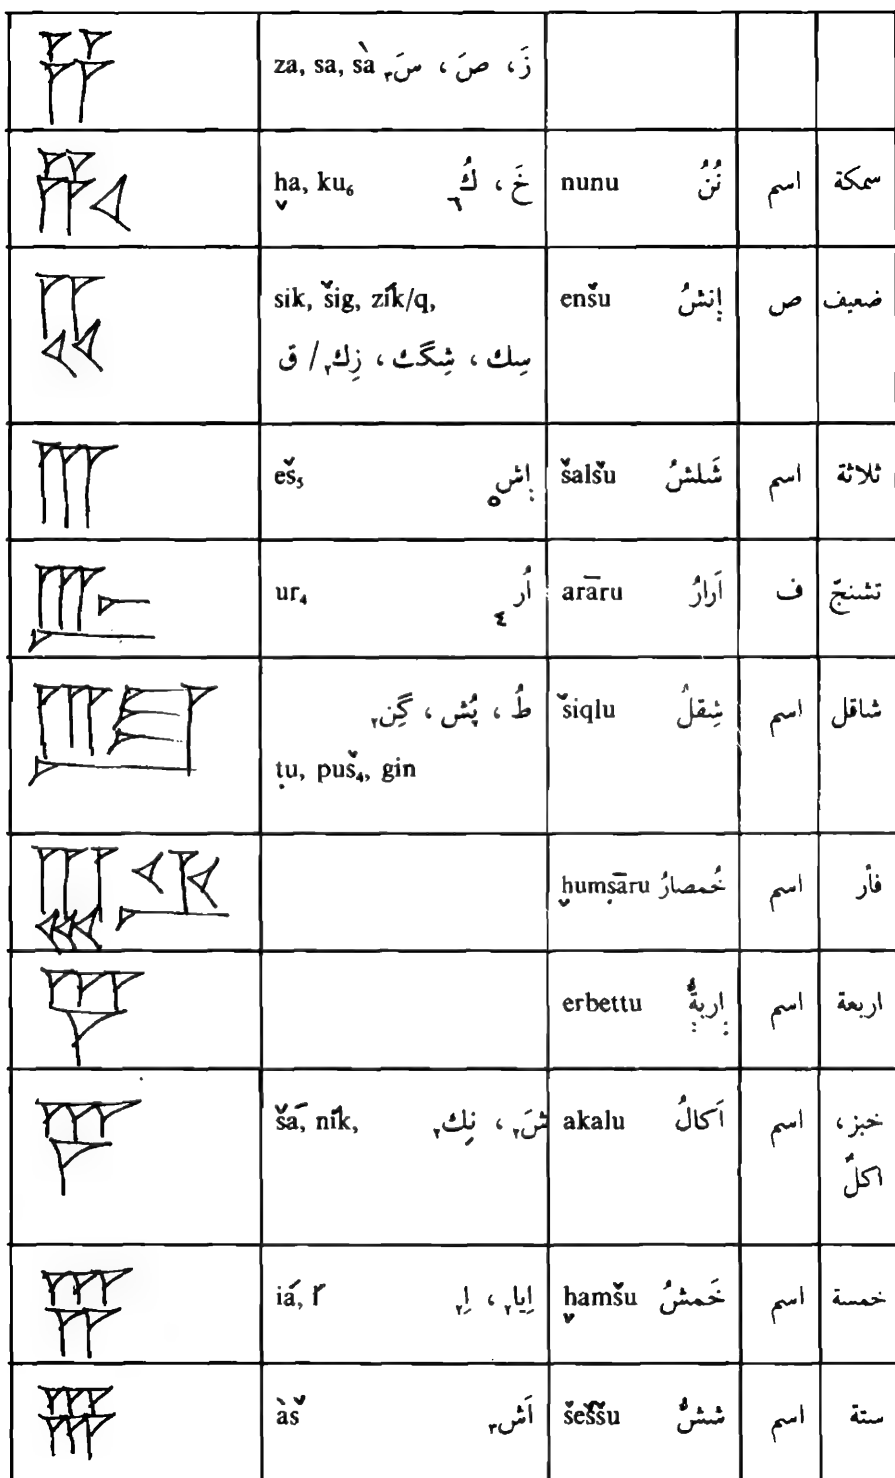 za, sa, sà زَ، صَ، سَ٣
ḫa, ku₆ خَ، كُ٦ nunu نُنُ اسم سمكة
sik, šig, zík/q, enšu إِنشُ ص ضعيف
سِك، شِگ، زِك٢/ ق
eš₅ إِش٥ šalšu شَلشُ اسم ثلاثة
ur₄ أُر٤ arāru اَرارُ ف تشنجّ
طُ، پُش، گِن٢ šiqlu شِقلُ اسم شاقل
ṭu, puš₄, gin
ḫumṣāru خُمصارُ اسم فأر
erbettu إِربةٌ اسم اربعة
šá, ník, شَ٢، نِك٢ akalu اَكالُ اسم خبز،
اكلٌ
iá, í إِيا٢، إِ٢ ḫamšu خَمشُ اسم خمسة
àš اَش٣ šeššu ششُّ اسم ستة